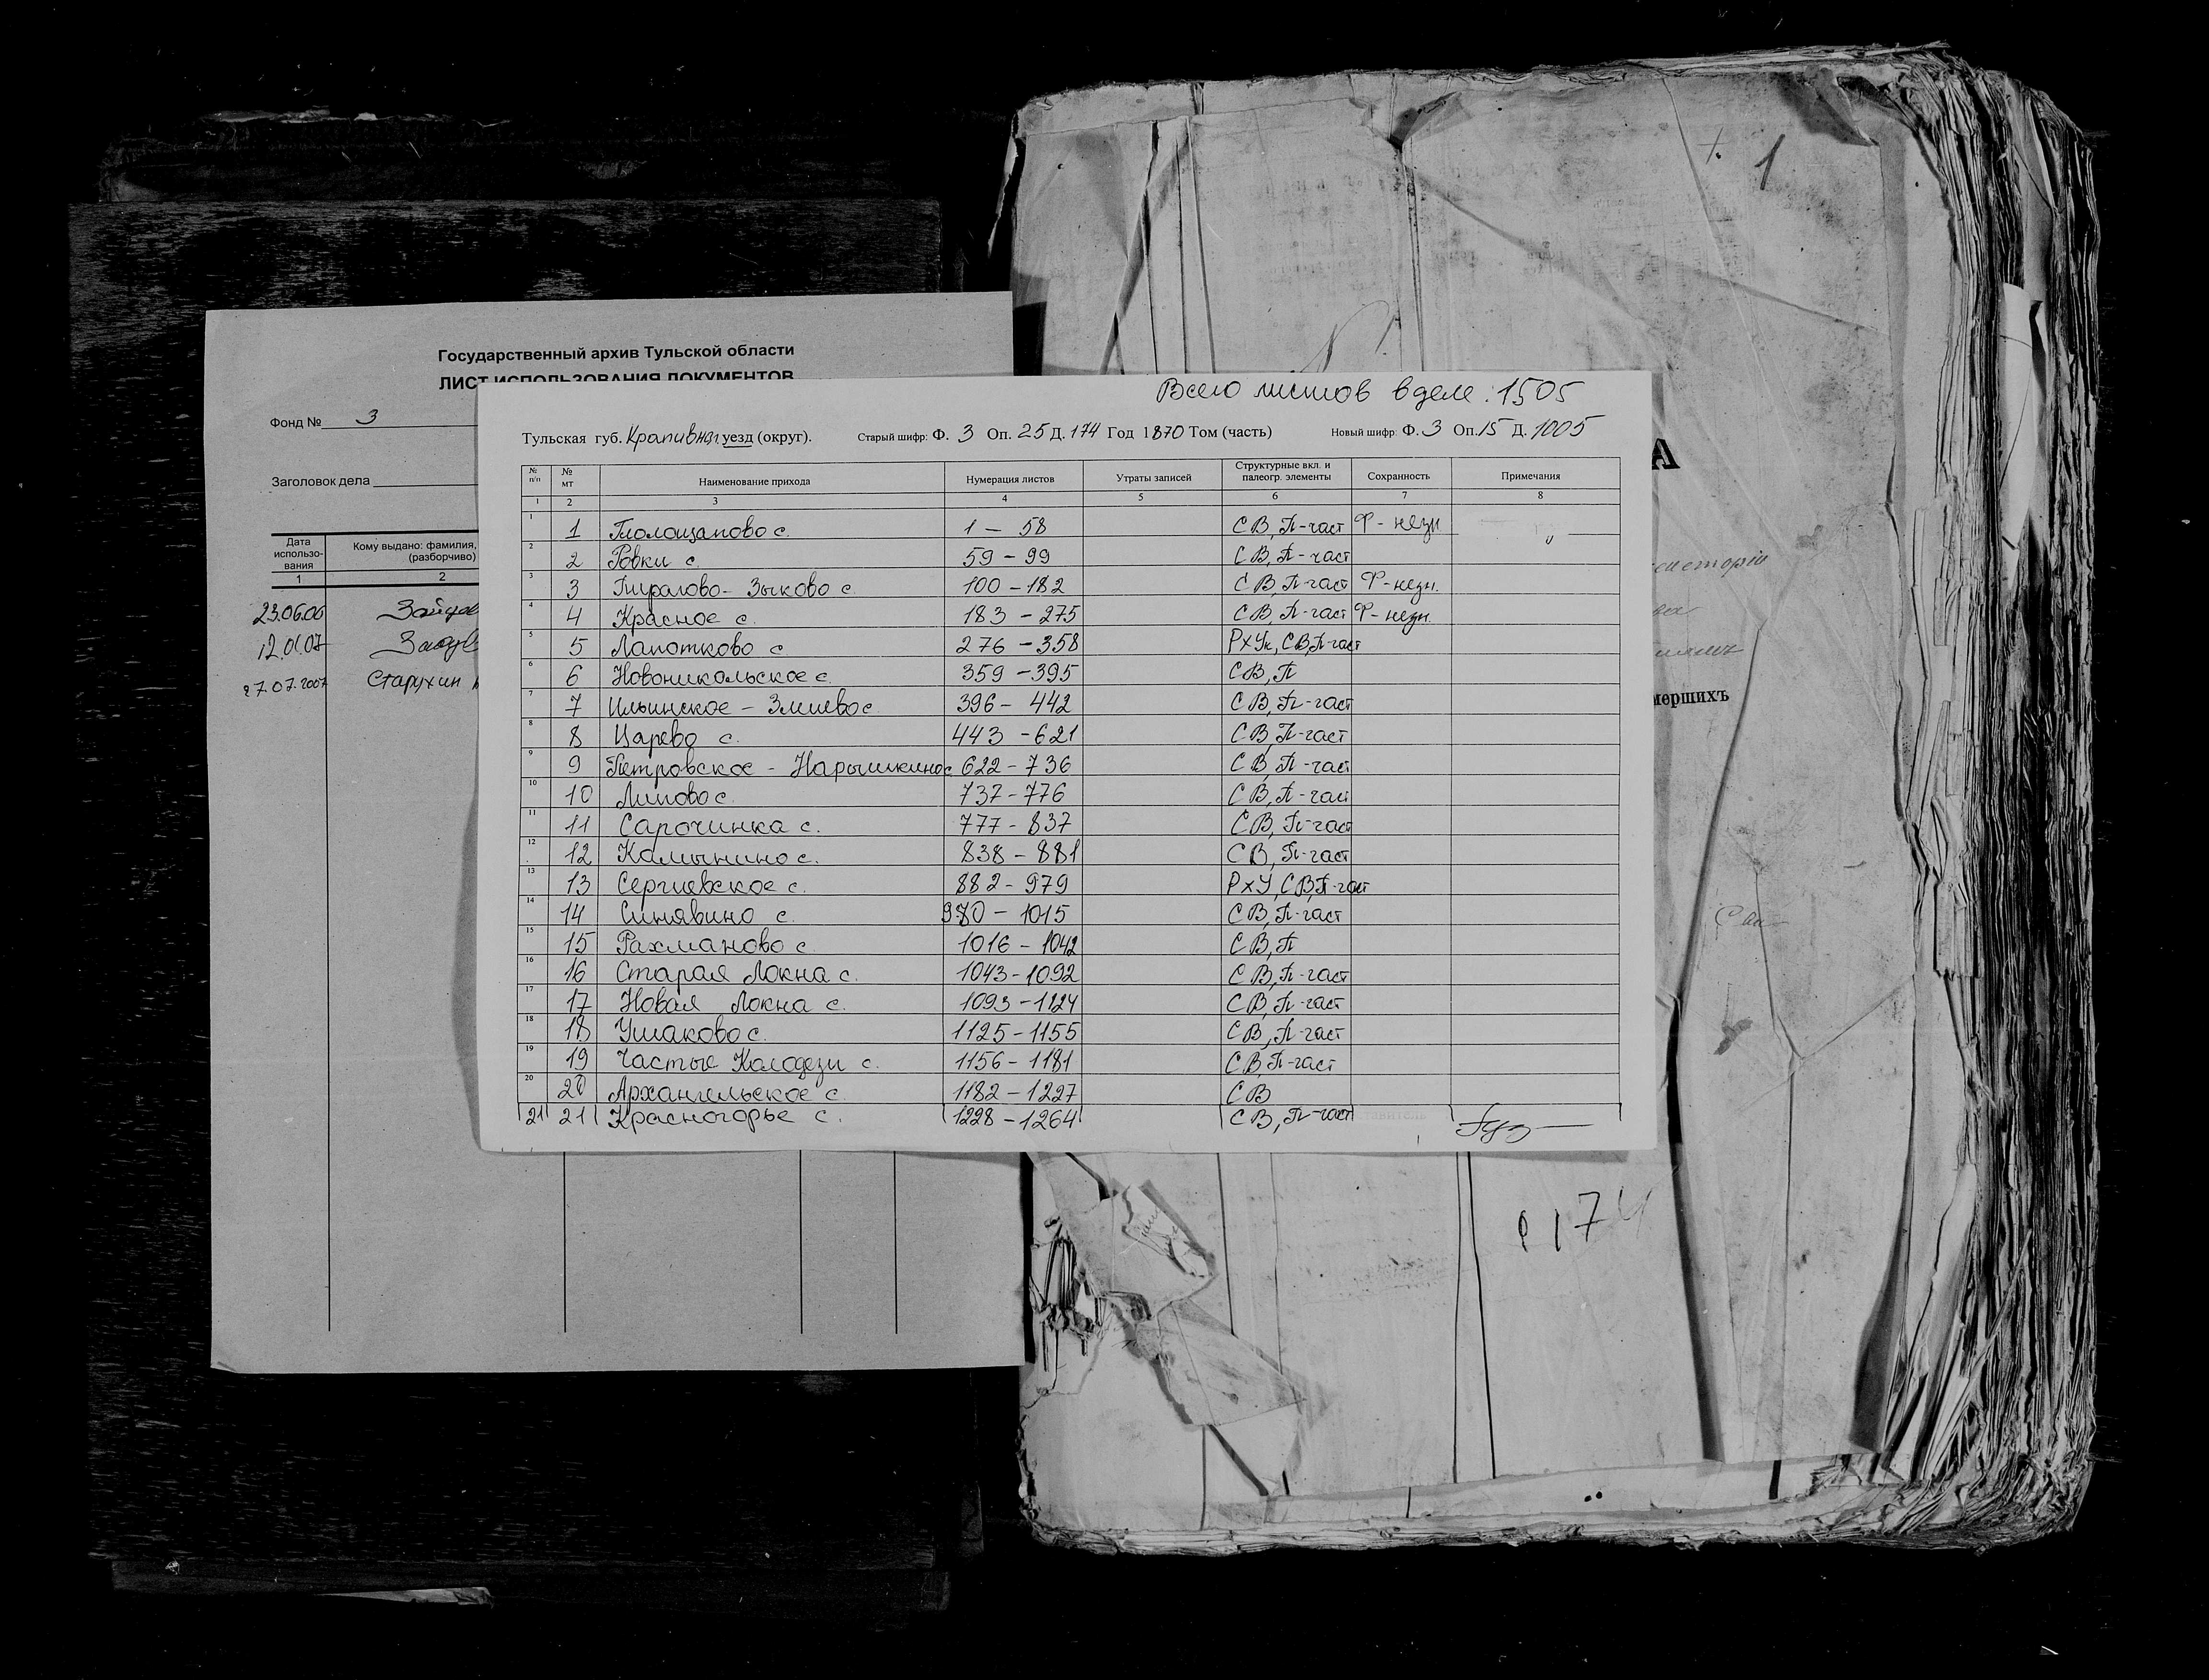 Государственный архив Тульской области
ЛИСТ ИСПОЛЬЗОВАНИЯ ДОКУМЕНТОВ
Фонд № 3
Заголовок дела
Дата использо-вания
Кому выдано: фамилия, (разборчиво)
1 2
23.06.06
12.01.07
27.07.2007 Старухин
Всего листов в деле: 1505
Тульская губ. Крапивна уезд (округ). Старый шифр: Ф. 3 Оп. 25 Д. 174 Год 1870 Том (часть) Новый шифр: Ф. 3 Оп. 15 Д. 1005
№ п/п № мт Наименование прихода Нумерация листов Утраты записей Структурные вкл. и палеогр. элементы Сохранность Примечания
1 2 3 4 5 6 7 8
1 1 с. 1 – 58 СВ, П-част Ф-незн
2 2 Ровки с. 59 – 99 СВ, П-част
3 3 Пирогово-Зыково с. 100 – 182 СВ, П-част Ф-незн.
4 4 Красное с. 183 – 275 СВ, П-част Ф-незн.
5 5 Лапотково с 276 – 358 РхУк, СВ, П-част
6 6 Новоникольское с. 359 – 395 СВ, П
7 7 Ильинское – Змиево с 396 – 442 СВ, П-част
8 8 Царево с. 443 – 621 СВ, П-част
9 9 Петровское – Нарышкино с 622 – 736 СВ, П-част
10 10 Липово с. 737 – 776 СВ, П-част
11 11 Сарочинка с. 777 – 837 СВ, П-част
12 12 Камынино с. 838 – 881 СВ, П-част
13 13 Сергиевское с. 882 – 979 РхУ, СВ, П-част
14 14 Синявино с. 980 – 1015 СВ, П-част
15 15 Рахманово с 1016 – 1042 СВ, П
16 16 Старая Локна с. 1043 – 1092 СВ, П-част
17 17 Новая Локна с. 1093 – 1124 СВ, П-част
18 18 Ушаково с. 1125 – 1155 СВ, П-част
19 19 Частые Колодези с. 1156 – 1181 СВ, П-част
20 20 Архангельское с. 1182 – 1227 СВ
21 21 Красногорье с. 1228 – 1264 СВ, П-част
1
А
мершихъ
174